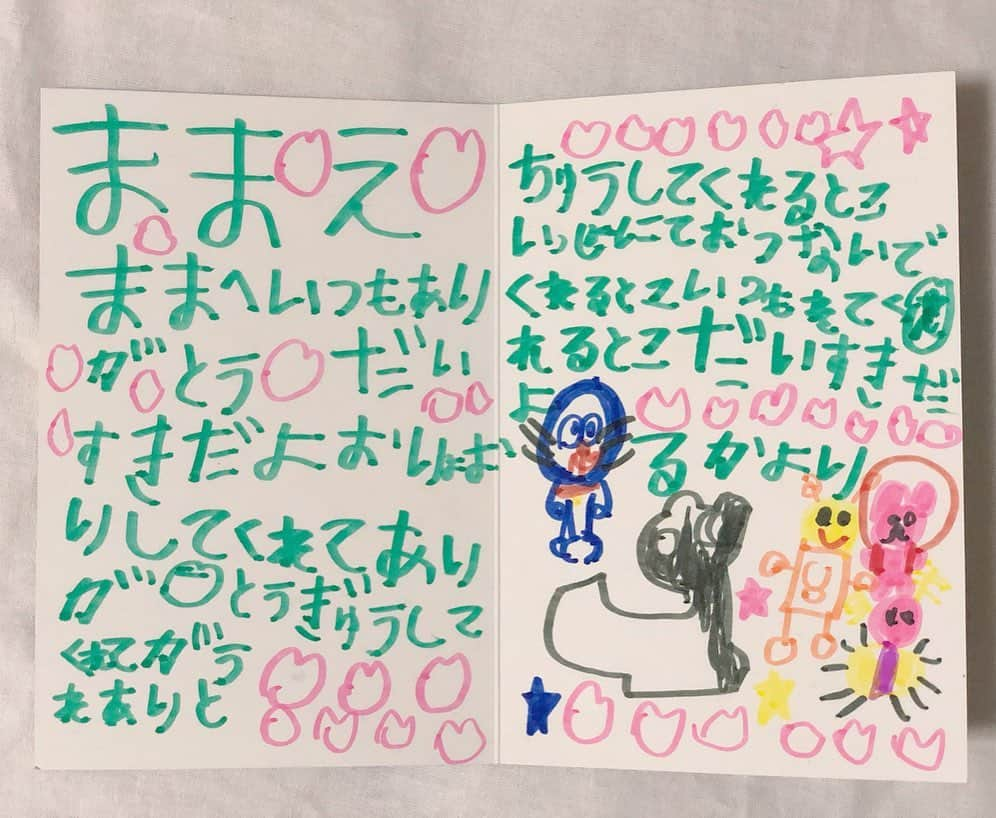 ままえ
ままへいつもあり
がとうだい
すきだよおりょおり
りしてくれてあり
がとうぎゅうして
くれてがう
れありと
ちゅうしてくれるところ
いっしょにておつないで
くれるとこいつもきてく
れるとこだいすきだ
よ
るかより